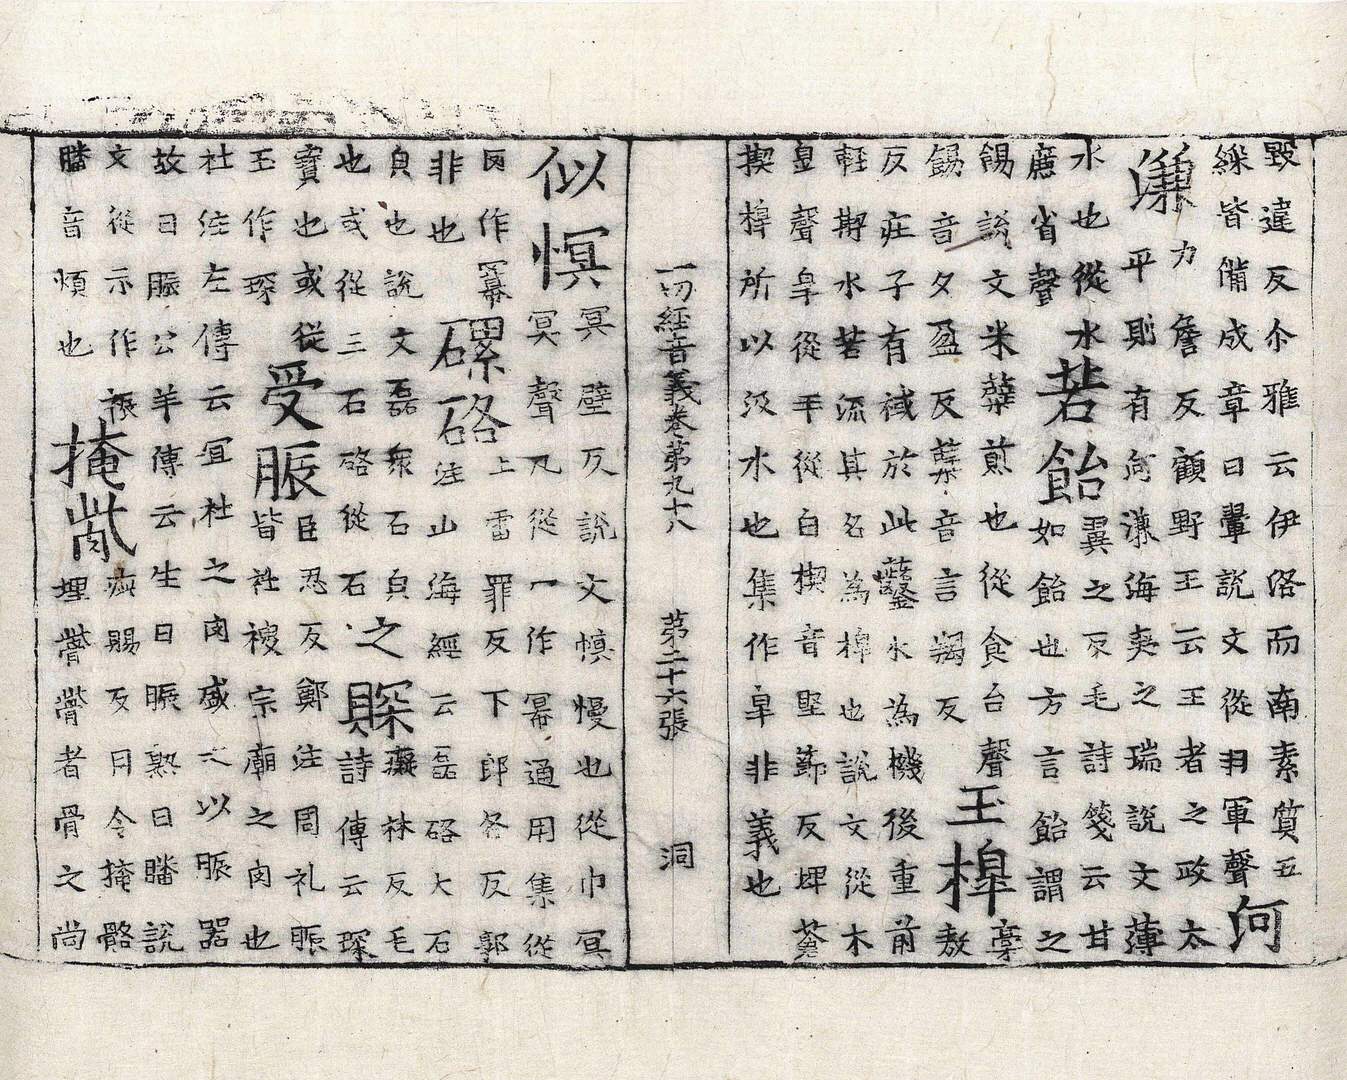 毀違反尒雅云伊洛而南素質五
綵皆備成章曰翬說文從羽軍聲何
濂力詹反顧野王云王者之政太
平則有河濂海夷之瑞說文薄
水也從水
廉省聲若飴翼之反毛詩箋云甘
如飴也方言飴謂之
餳說文米糱煎也從食台聲
餳音夕盈反糱音言羯反玉槔藁
敖
反莊子有椷於此鑿木為機後重前
輕掣水若流其名為槔也說文從木
皇聲皐從夲從白楔音堅節反埤蒼
楔槔所以汲水也集作皐非義也
一切經音義卷第九十八 第二十六張 洞
似幎冥壁反說文幎慢也從巾冥
冥聲冗從一作冪通用集從
作冪
非也磥硌上雷罪反下郎各反郭
注山海經云磊硌大石
皃也說文磊眾石皃
也或從三石硌從石之賝癡林反毛
詩傳云琛
寶也或從
玉作琛受脤臣忍反鄭注周礼脤
皆社稷宗廟之肉也
杜注左傳云宜社之肉盛之以脤器
故曰脤公羊傳云生曰脤熟曰膰說
文從示作祳
膰音煩也掩骴疵賜反月令掩骼
埋胔胔者骨之尚